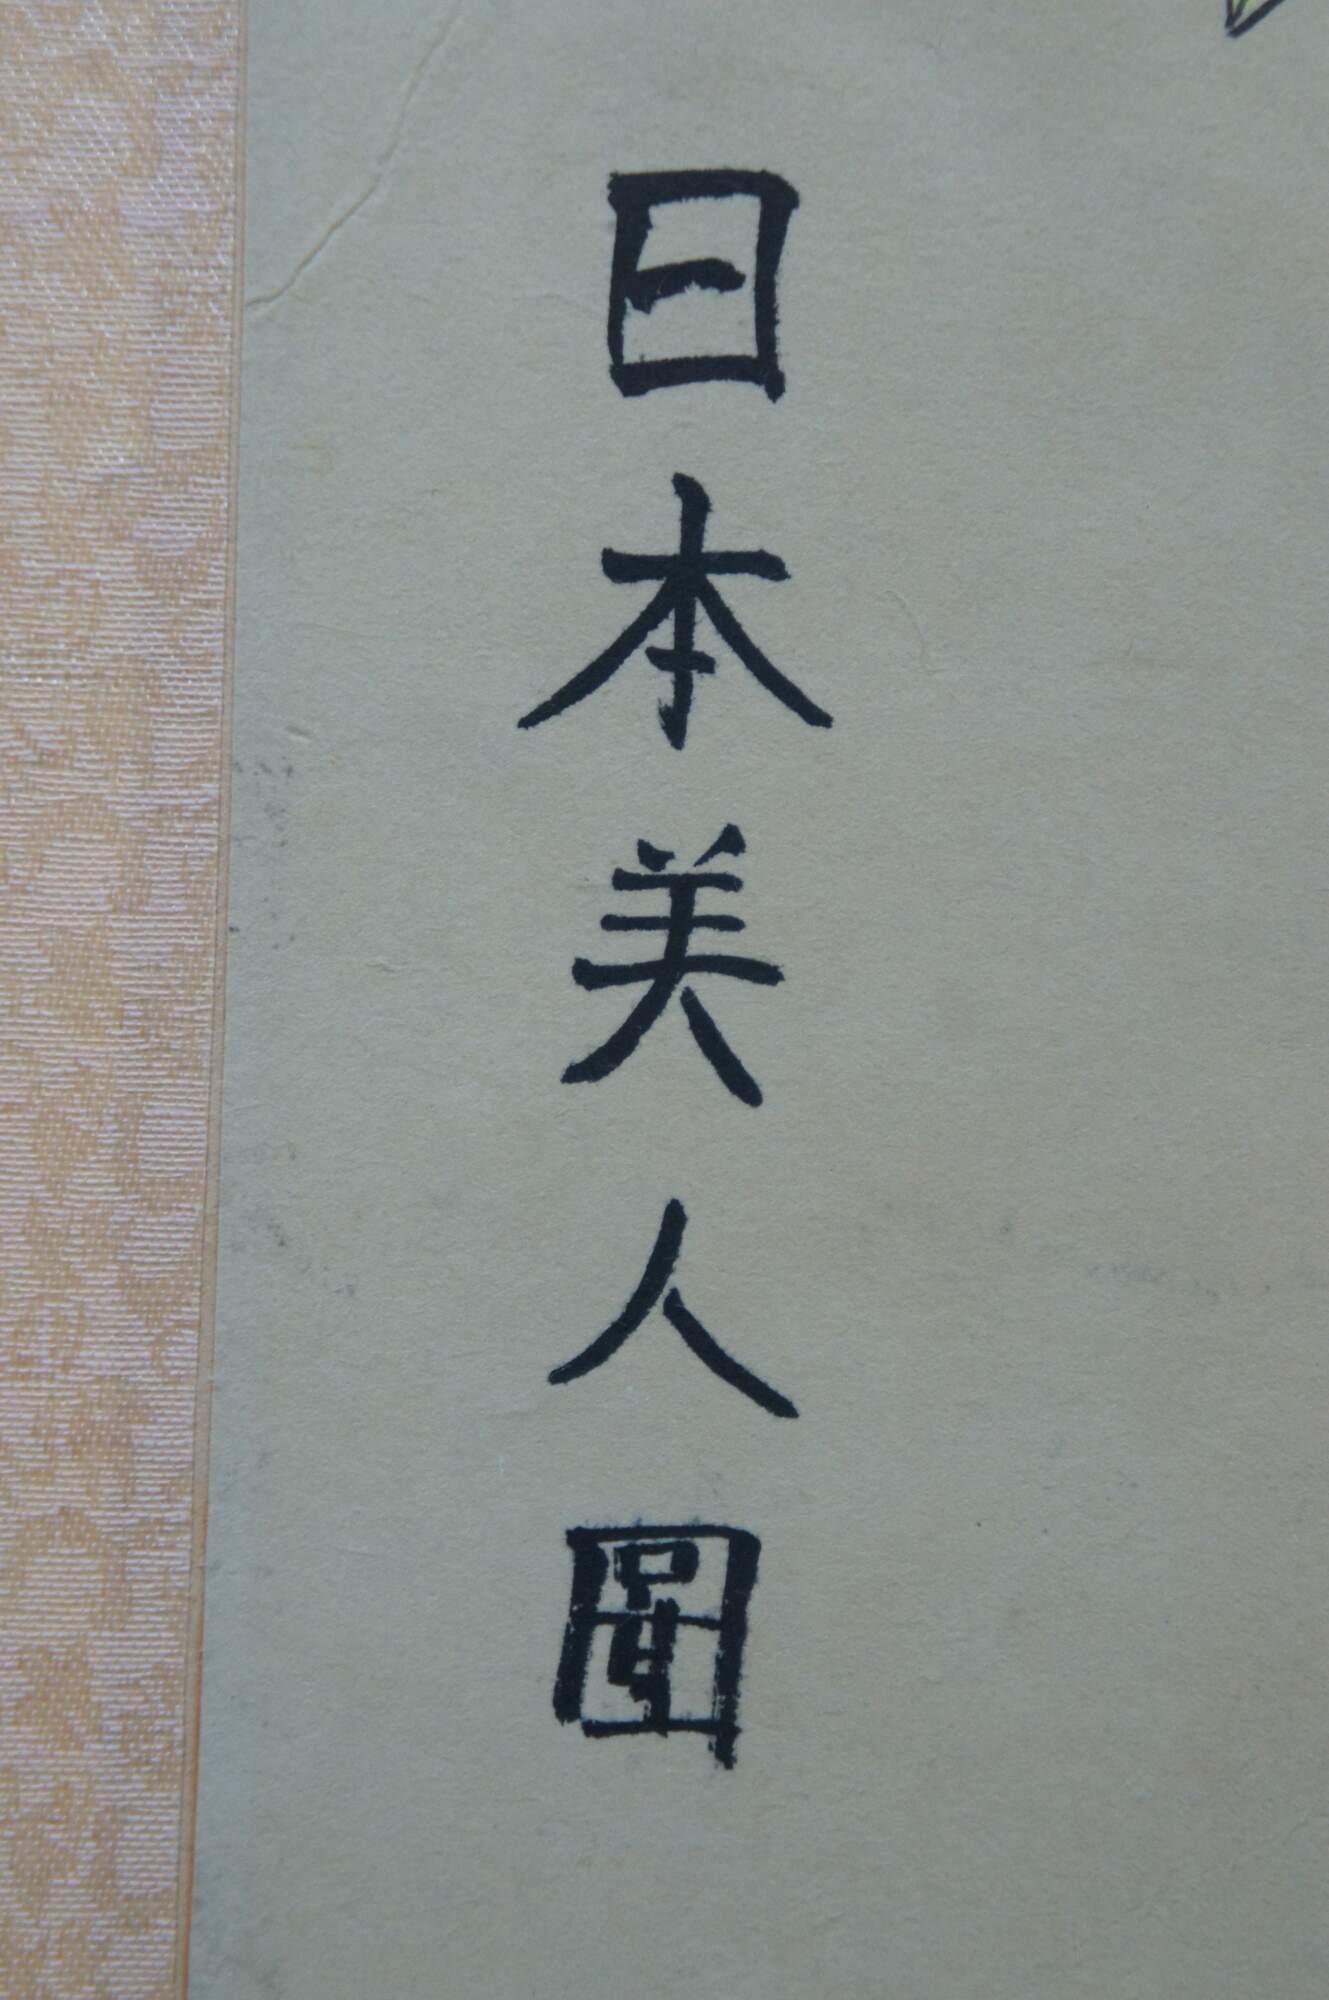 日本美人圖